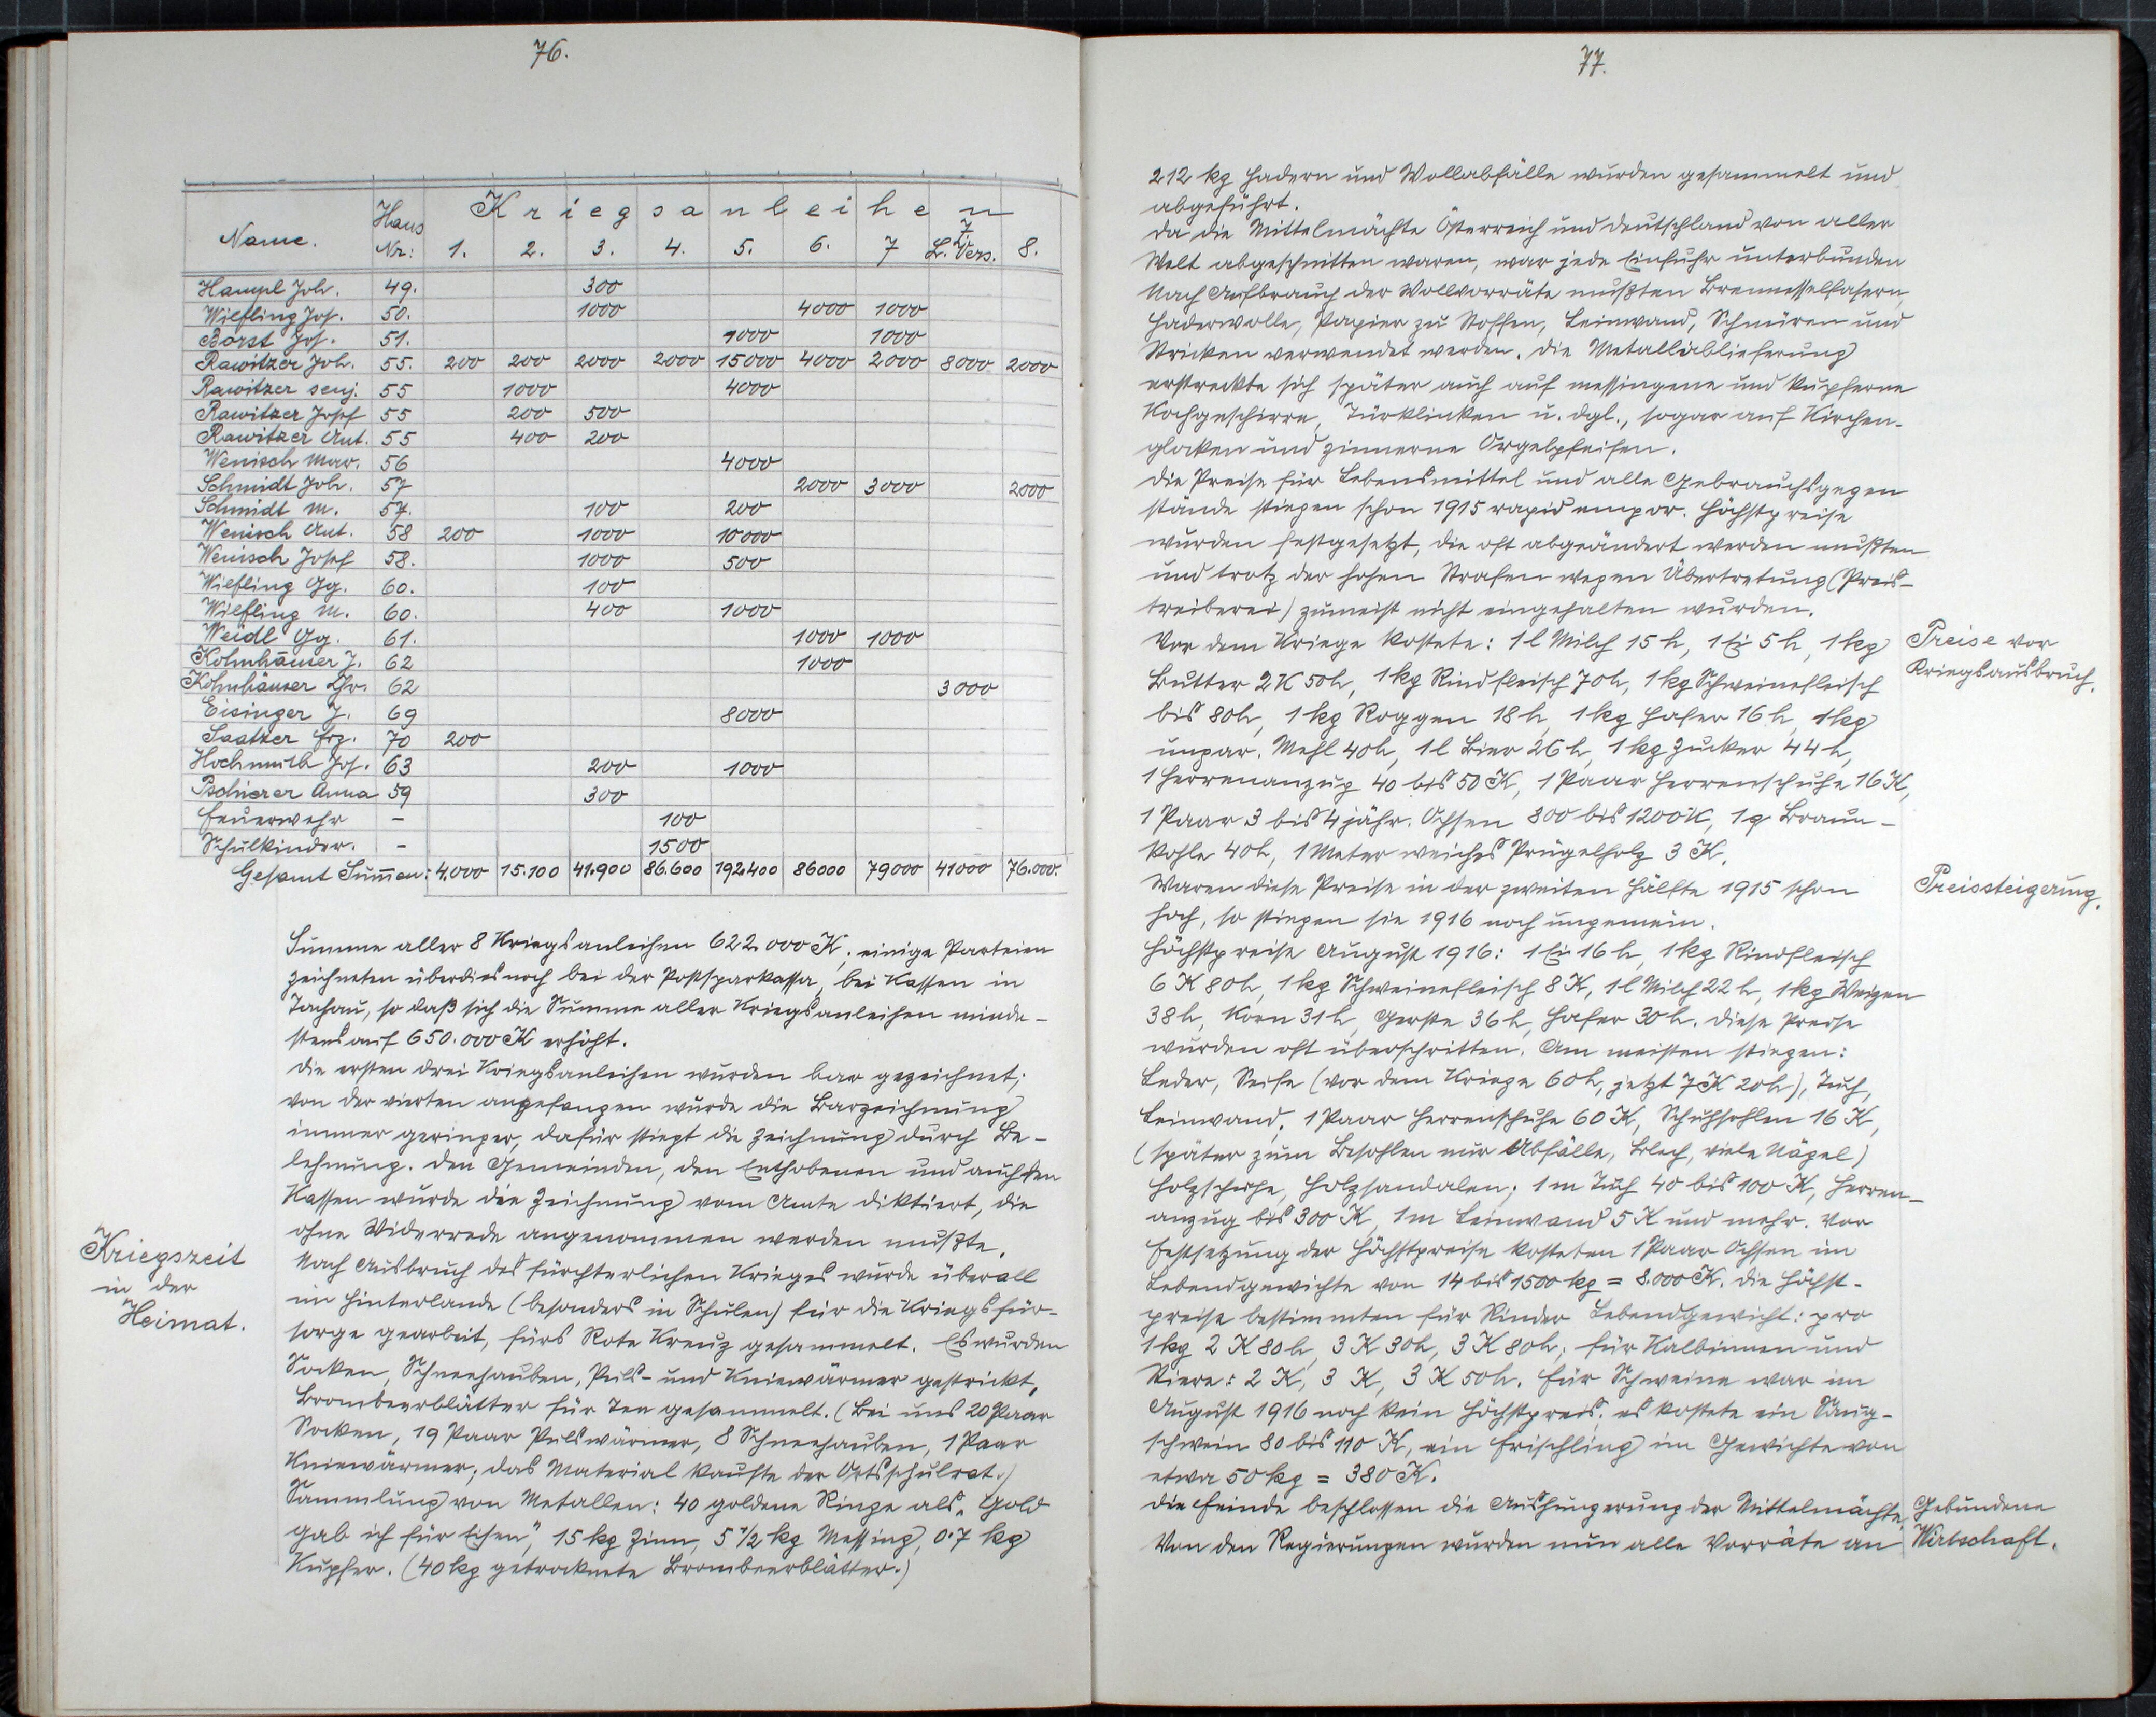 76.
Kriegsanleihen
Name. Haus Nr: 1. 2. 3. 4. 5. 6. 7 7. L. Vers. 8.
Hampl Joh. 49. 300
Wilfling Jos. 50. 1000 4000 1000
Borst Jos. 51. 1000 1000
Rawitzer Joh. 55. 200 200 2000 2000 15000 4000 2000 8000 2000
Rawitzer senj. 55 1000 4000
Rawitzer Josef 55 200 500
Rawitzer Ant. 55 400 200
Wenisch Mar. 56 4000
Schmidt Joh. 57 2000 3000 2000
Schmidt M. 57. 100 200
Wenisch Ant. 58 200 1000 10000
Wenisch Josef 58. 1000 500
Wilfling Gg. 60. 100
Wilfling M. 60. 400 1000
Weidl Gg. 61. 1000 1000
Kohnhäuser J. 62 1000
Kohnhäuser 62 3000
Eisinger J. 69 8000
Saatzer Frz. 70 200
Hochmuth Jos. 63 200 1000
Pschierer Anna 59 300
Feuerwehr - 100
Schulkinder. - 1500
Gesamt Summen: 4.000 15.100 41.900 86.600 192400 86000 79000 41000 76.000.
Summe aller 8 Kriegsanleihen 622.000 K; einige Parteien
zeichneten überdies noch bei der Postsparkassa, bei Kassen in
Tachau, so daß sich die Summe aller Kriegsanleihen minde-
stens auf 650.000 K erhöht.
Die ersten drei Kriegsanleihen wurden bar gezeichnet;
von der vierten angefangen wurde die Barzeichnung
immer geringer, dafür stiegt die Zeichnung durch Be-
lehnung. Den Gemeinden, den Enthobenen und auch den
Kassen wurde die Zeichnung vom Amte diktiert, die
ohne Widerrede angenommen werden mußte.
Kriegszeit
in der
Heimat.
Nach Ausbruch des fürchterlichen Krieges wurde überall
im Hinterlande (besonders in Schulen) für die Kriegsfür-
sorge gearbeit, fürs Rote Kreuz gesammelt. Es wurden
Socken, Schneehauben, Puls- und Kniewärmer gestrickt,
Brombeerblätter für Tee gesammelt. (Bei uns 20 Paar
Socken, 19 Paar Pulswärmer, 8 Schneehauben, 1 Paar
Kniewärmer; das Material kaufte der Ortsschulrat.)
Sammlung von Metallen: 40 goldene Ringe als „Gold
gab ich für Eisen", 15 kg Zinn, 5 1/2 kg Messing, 0.7 kg
Kupfer. (40 kg getrocknete Brombeerblätter.)
77.
212 kg Hadern und Wollabfälle wurden gesammelt und
abgeführt.
Da die Mittelmächte Österreich und Deutschland von aller
Welt abgeschnitten waren, war jede Einfuhr unterbunden
Nach Aufbrauch der Wollvorräte mußten Brennesselfasern,
Haderwolle, Papier zu Stoffen, Leinwand, Schnüren und
Stricken verwendet werden. Die Metallablieferung
erstreckte sich später auch auf messingene und kupferne
Kochgeschirre, Türklinken u. dgl., sogar auf Kirchen-
glocken und zinnerne Orgelpfeifen.
Die Preise für Lebensmittel und alle Gebrauchsgegen
stände stiegen schon 1915 rapid empor. Höchstpreise
wurden festgesetzt, die oft abgeändert werden mußten
und trotz der hohen Strafen wegen Übertretung (Preis-
treiberei) zumeist nicht eingehalten wurden.
Preise vor
Kriegsausbruch.
Vor dem Kriege kostete: 1 l Milch 15 h, 1 Ei 5 h, 1 kg
Butter 2 K 50h, 1 kg Rindfleisch 70h, 1 kg Schweinefleisch
bis 80h, 1 kg Roggen 18 h, 1 kg Hafer 16 h, 1 kg
ungar. Mehl 40h, 1 l Bier 26 h, 1 kg Zucker 44 h,
1 Herrenanzug 40 bis 50 K, 1 Paar Herrenschuhe 16 K,
1 Paar 3 bis 4 jähr. Ochsen 800 bis 1200 K, 1 q Braun-
kohle 40h, 1 Meter weiches Prügelholz 3 K.
Preissteigerung.
Waren diese Preise in der zweiten Hälfte 1915 schon
hoch, so stiegen sie 1916 noch ungemein.
Höchstpreise August 1916: 1 Ei 16 h, 1 kg Rindfleisch
6 K 80h, 1 kg Schweinefleisch 8 K, 1 l Milch 22 h, 1 kg Weizen
38 h, Korn 31 h, Gerste 36 h, Hafer 30 h. Diese Preise
wurden oft überschritten. Am meisten stiegen:
Leder, Seife (vor dem Kriege 60h, jetzt 7 K 20h), Tuch,
Leinwand; 1 Paar Herrenschuhe 60 K, Schuhsohlen 16 K,
(später zum Besohlen nur Abfälle, Blech, viele Nägel)
Holzschuhe, Holzsandalen; 1 m Tuch 40 bis 100 K, Herren-
anzug bis 300 K, 1m Leinwand 5 K und mehr. Vor
Festsetzung der Höchstpreise kosteten 1 Paar Ochsen im
Lebendgewichte von 14 bis 1500 kg = 8.000 K. Die Höchst-
preise bestimmten für Rinder Lebendgewicht: pro
1 kg 2 K 80 h, 3 K 30h, 3 K 80h; für Kalbinnen und
Stiere: 2 K, 3 K, 3 K 50h. Für Schweine war im
August 1916 noch kein Höchstpreis; es kostete ein Saug-
schwein 80 bis 110 K, ein Frischling im Gewichte von
etwa 50 kg = 380 K.
Gebundene
Wirtschaft.
Die Feinde beschlossen die Aushungerung der Mittelmächte.
Von den Regierungen wurden nun alle Vorräte an